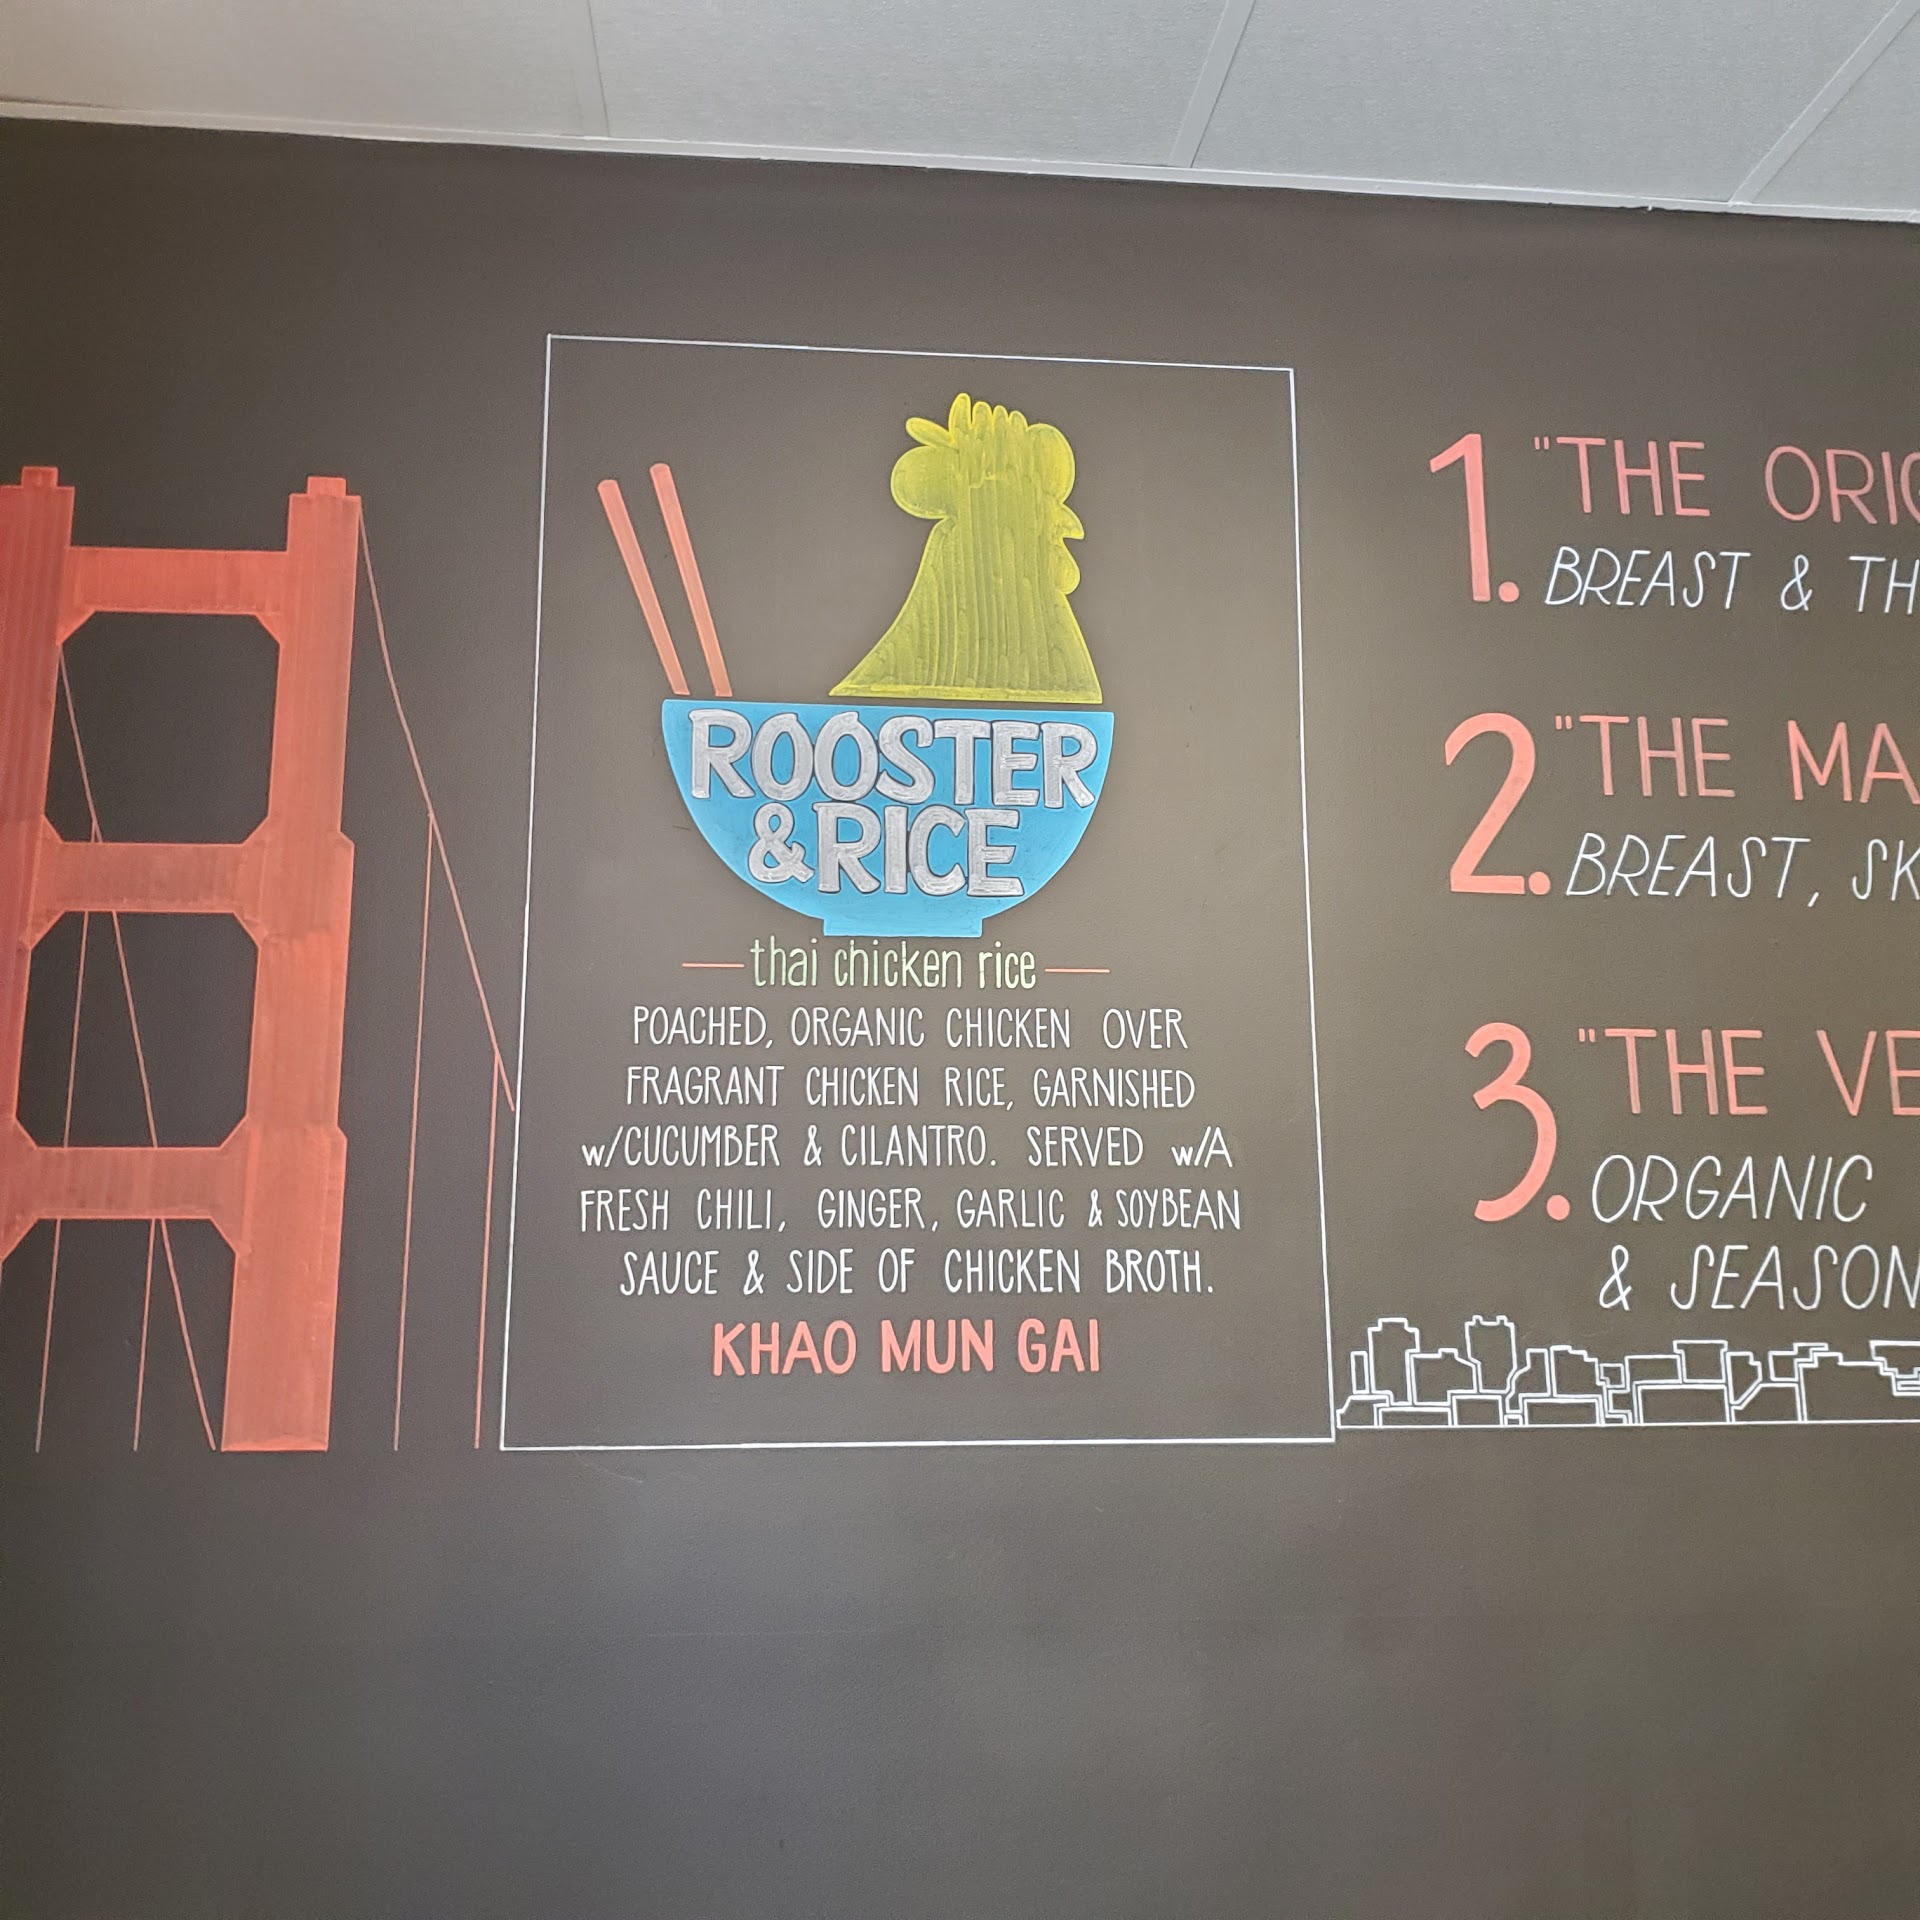 ROOSTER
& RICE
thai chicken rice
POACHED, ORGANIC CHICKEN OVER
FRAGRANT CHICKEN RICE, GARNISHED
w/CUCUMBER & CILANTRO. SERVED w/A
FRESH CHILI, GINGER, GARLIC & SOYBEAN
SAUCE & SIDE OF CHICKEN BROTH.
KHAO MUN GAI
1. "THE
BREAST &
2. "THE
BREAST,
3. "THE
ORGANIC
&